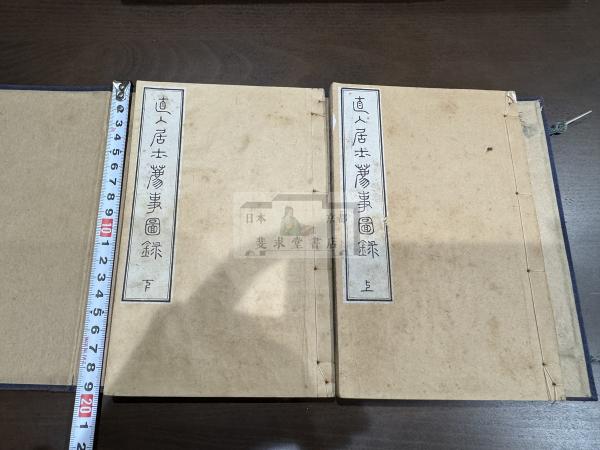 直入居士薦事圖錄 上
直入居士薦事圖錄 下
日本 京都
斐求堂書店
2
3
4
5
6
7
8
9
10
1
2
3
4
5
6
7
8
9
20
1
2